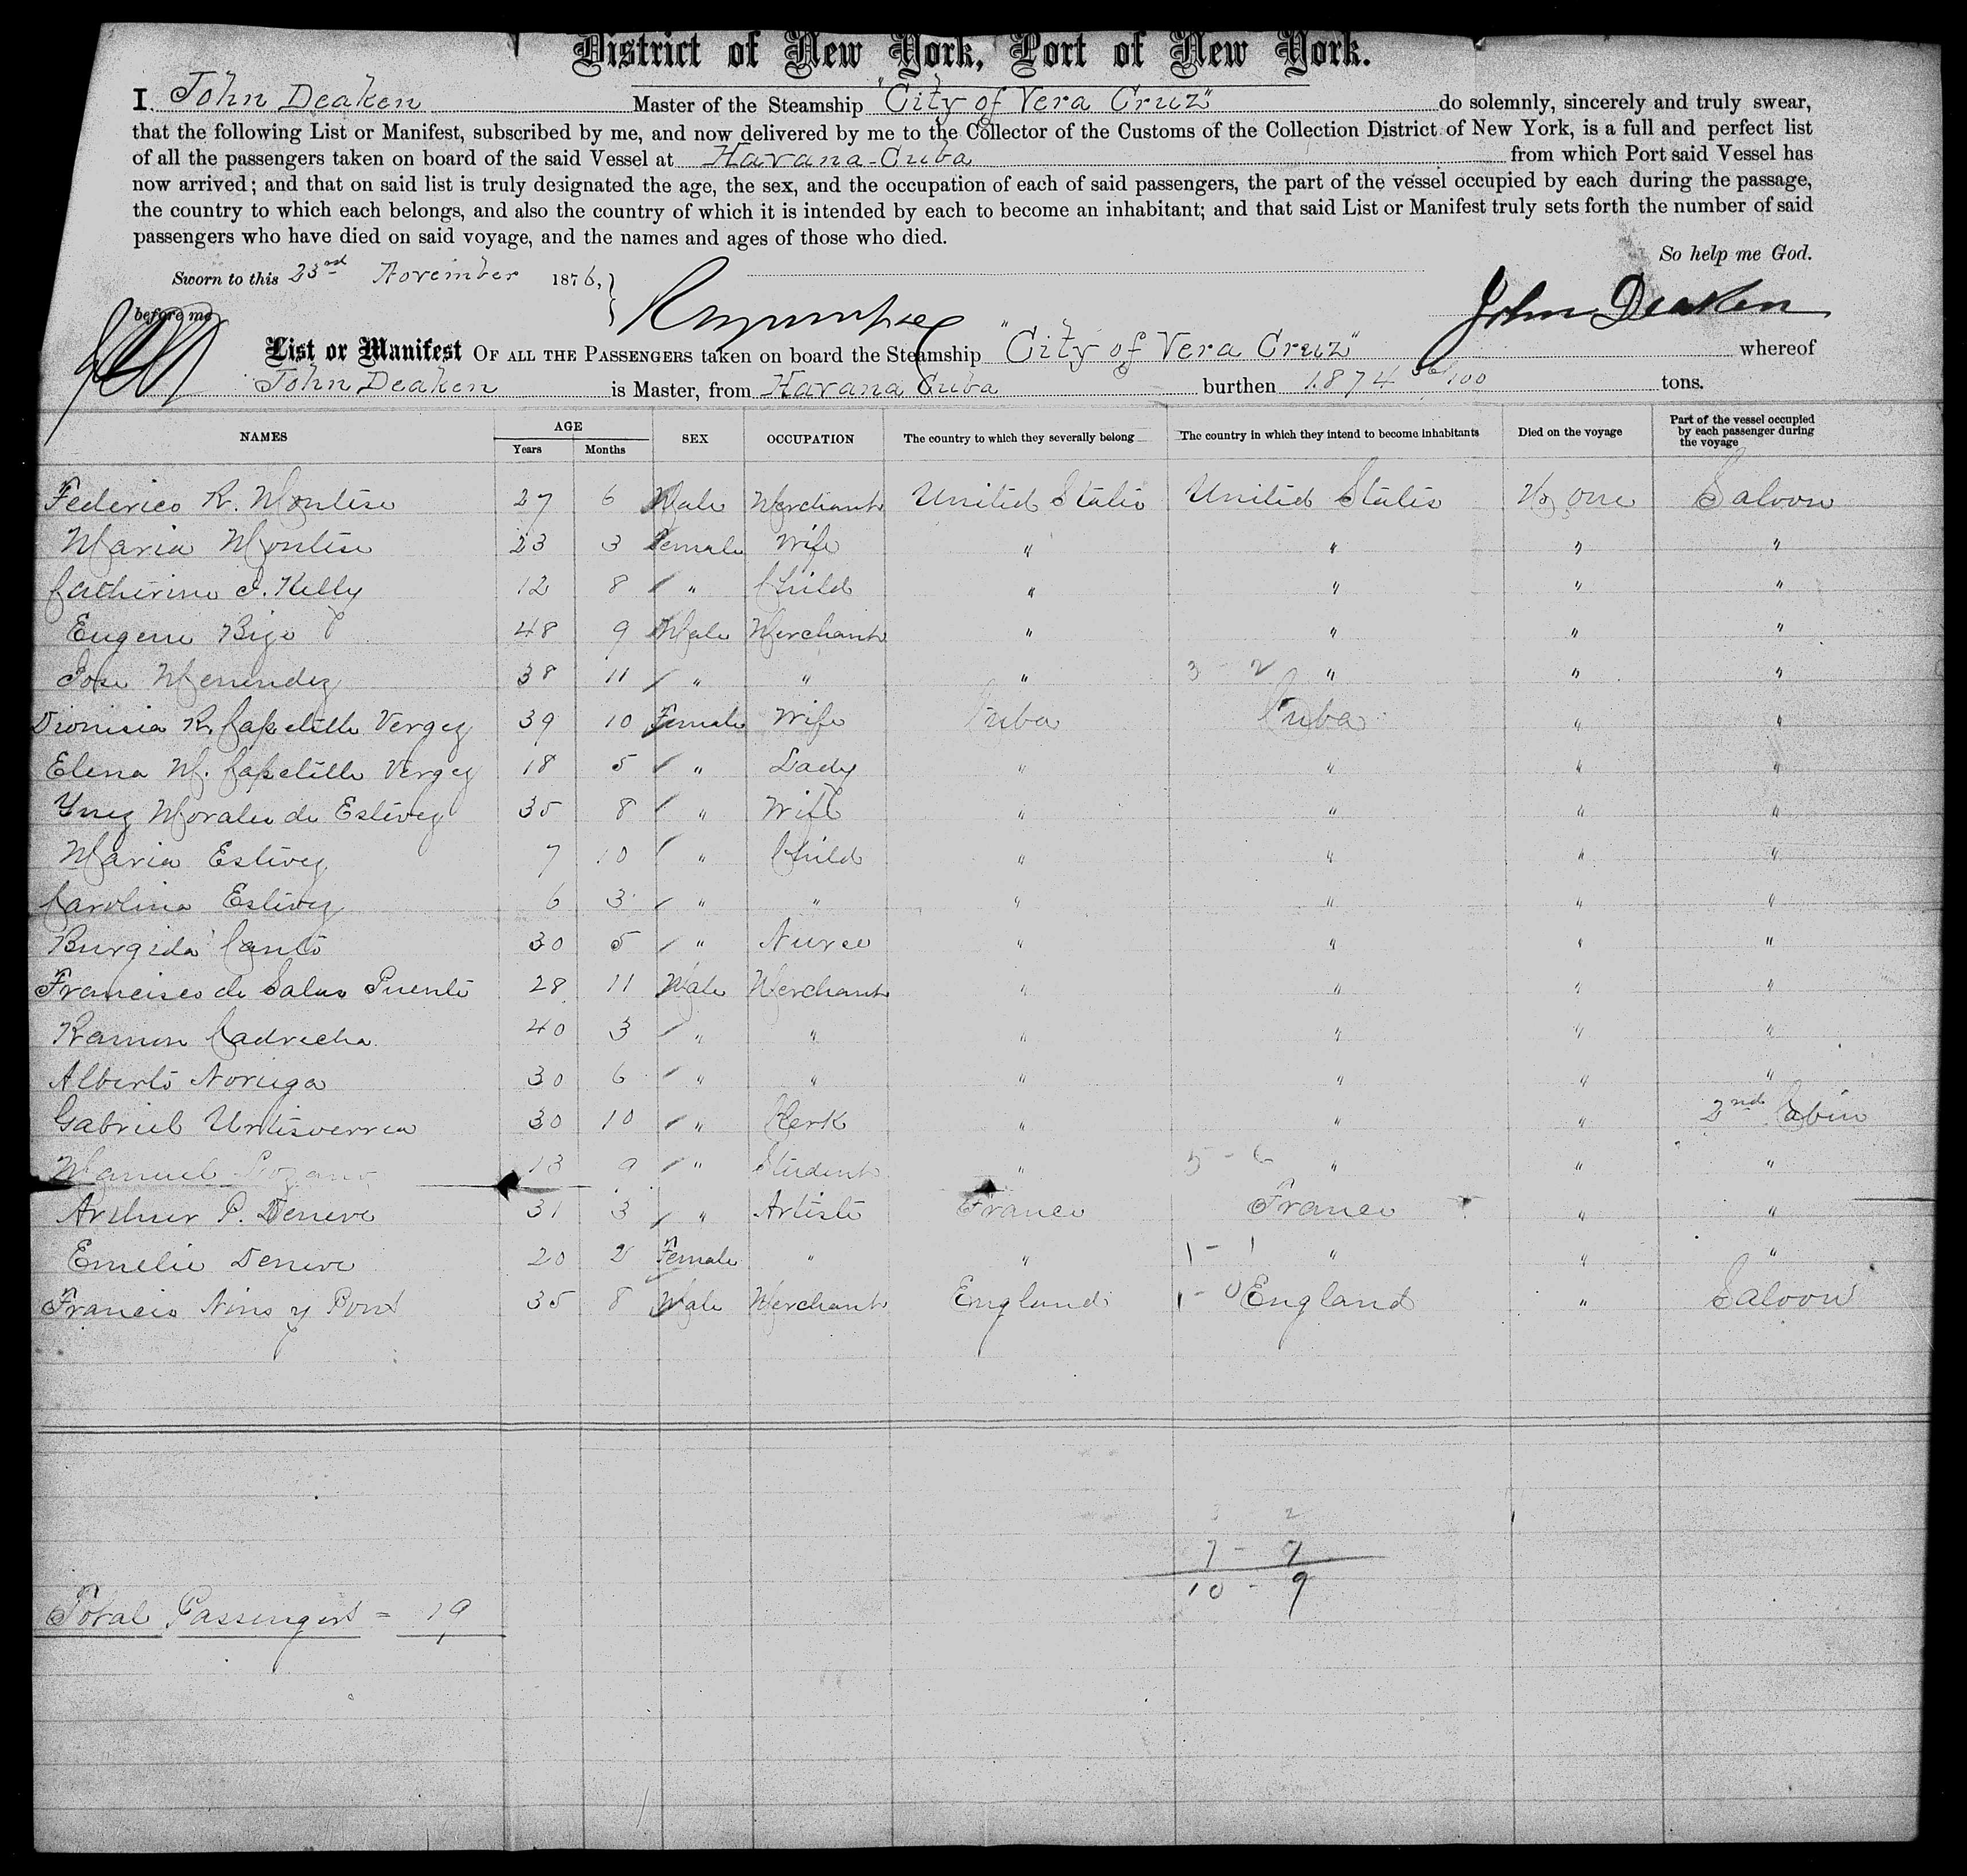 District of New York, Port of New York.
I, John Deaken Master of the Steamship "City of Vera Cruz" do solemnly, sincerely and truly swear,
that the following List or Manifest, subscribed by me, and now delivered by me to the Collector of the Customs of the Collection District of New York, is a full and perfect list
of all the passengers taken on board of the said Vessel at Havana-Cuba from which Port said Vessel has
now arrived; and that on said list is truly designated the age, the sex, and the occupation of each of said passengers, the part of the vessel occupied by each during the passage,
the country to which each belongs, and also the country of which it is intended by each to become an inhabitant; and that said List or Manifest truly sets forth the number of said
passengers who have died on said voyage, and the names and ages of those who died.
So help me God.
Sworn to this 23rd November 1876,
before me
John Deaken
List or Manifest OF ALL THE PASSENGERS taken on board the Steamship "City of Vera Cruz" whereof
John Deaken is Master, from Havana Cuba burthen 1874 36/100 tons.
NAMES AGE Years Months SEX OCCUPATION The country to which they severally belong The country in which they intend to become inhabitants Died on the voyage Part of the vessel occupied by each passenger during the voyage
Federico R. Montese 27 6 Male Merchant United States United States No one Saloon
Maria Montese 23 3 Female Wife " " " "
Catherine J. Kelly 12 8 " Child " " " "
Eugene Bize 48 9 Male Merchant " " " "
Jose Menendez 38 11 " " " 3 - 2 " " "
Dionisia R. Capetillo Vergez 39 10 Female Wife Cuba Cuba " "
Elena M. Capetillo Vergez 18 5 " Lady " " " "
Ynez Morales de Estevez 35 8 " Wife " " " "
Maria Estevez 7 10 " Child " " " "
Carolina Estevez 6 3 " " " " " "
Burgida Canto 30 5 " Nurse " " " "
Francisco de Salas Puente 28 11 Male Merchant " " " "
Ramon Cadrecha 40 3 " " " " " "
Alberto Noriega 30 6 " " " " " "
Gabriel Urtisverrea 30 10 " Clerk " " " 2nd Cabin
Manuel Lozano 13 9 " Student " 5 - 6 " " "
Arthur P. Deneve 31 3 " Artiste France France " "
Emelie Deneve 20 2 Female " " 1 - 1 " " "
Francis Nins y Pont 35 8 Male Merchant England 1 - 0 England " Saloon
3 2
7 - 7
10 - 9
Total Passengers = 19